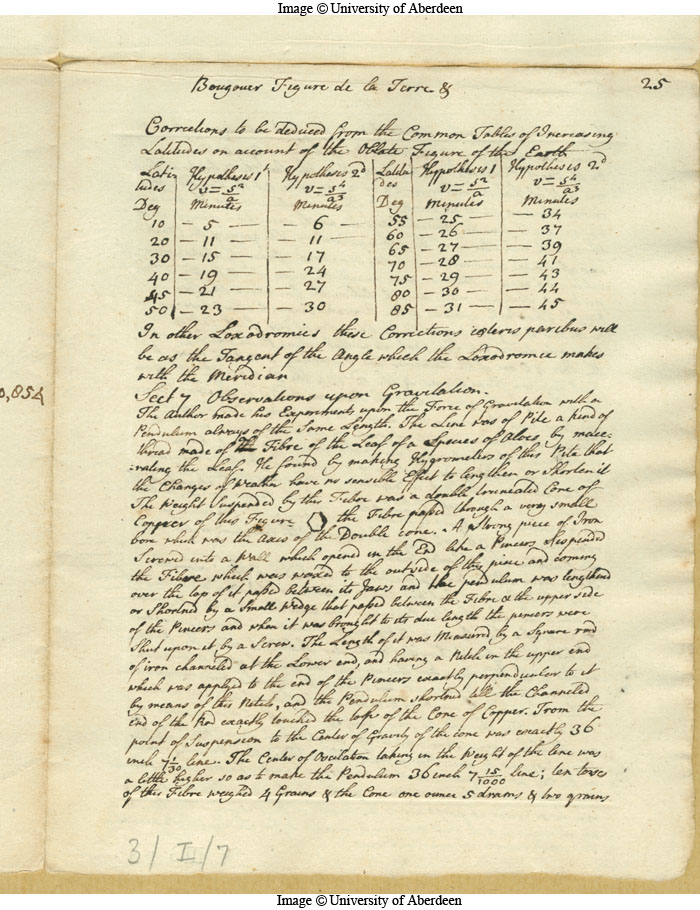 Image © University of Aberdeen
Bougouer Figure de la Terre & 25
Corrections to be deduced from the Common Tables of Increasing
Latitudes on account of the Oblate Figure of the Earth
Lati- Hypothesis 1 Hypothesis 2d Latitu Hypothesis 1 Hypothesis 2d
tudes v=s²/a v=s⁴/a³ des v=s²/a v=s⁴/a³
Deg Minutes Minutes Deg Minutes Minutes
10 – 5 – 6 – 55 – 25 – 34
20 – 11 – 11 – 60 – 26 – 37
30 – 15 – 17 65 – 27 – 39
40 – 19 – 24 70 – 28 – 41
45 – 21 – 27 75 – 29 – 43
50 – 23 – 30 80 – 30 – 44
85 – 31 – 45
In other Loxodromics these Corrections cæteris paribus will
be as the Tangent of the Angle which the Loxodromic makes
with the Meridian
0,854
Sect 7 Observations upon Gravitation.
The Author made his Experiments upon the Force of Gravitation with a
Pendulum always of the Same Length. The Line was of Pite a kind of
thread made of the Fibre of the Leaf of a Species of Aloes by mace-
:rating the Leaf. He found by making Hygrometers of this Pite that
the Changes of Weather have no sensible Effect to lengthen or Shorten it
The Weight Suspended by this Fibre was a double truncated Cone of
Copper of this Figure the Fibre passed through a very small
bore which was the Axis of the Double cone. A strong piece of Iron
Screwed into a Wall which opened in the End like a Pincers suspended
the Fibre which was waxed to the outside of this piece and coming
over the top of it passed between its Jaws and the pendulum was lengthned
or Shortned by a Small Wedge that passed between the Fibre & the upper side
of the Pincers and when it was brought to its due length the pincers were
Shut upon it by a Screw. The Length of it was Measured by a Square rod
of iron channeled at the Lower end, and having a Notch in the upper end
which was applyed to the end of the Pincers exactly perpendicular to it
by means of this Notch, and the Pendulum shortned till the Channeled
end of the Rod exactly touched the top of the Cone of Copper. From the
point of Suspension to the Center of Gravity of the cone was exactly 36
inch 7 1/30 line. The Center of Oscilation taking in the Weight of the line was
a little higher so as to make the Pendulum 36 inch 7 15/1000 line; ten toises
of this Fibre weighed 4 Grains & the Cone one ounce 5 drams & two grains
3/I/7
Image © University of Aberdeen